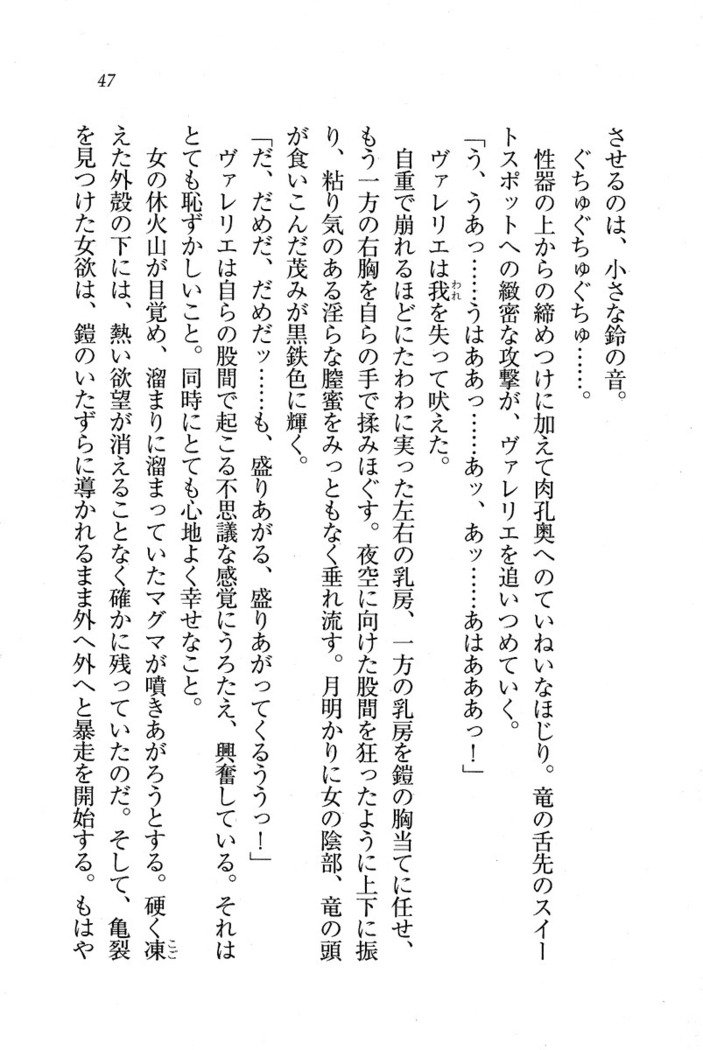 47
させるのは、小さな鈴の音。
ぐちゅぐちゅぐちゅ……。
性器の上からの締めつけに加えて肉孔奥へのていねいなほじり。竜の舌先のスイー
トスポットへの緻密な攻撃が、ヴァレリエを追いつめていく。
「う、うあっ……うはああっ……あッ、あッ……あはあああっ！」
ヴァレリエは我を失って吠えた。
自重で崩れるほどにたわわに実った左右の乳房、一方の乳房を鎧の胸当てに任せ、
もう一方の右胸を自らの手で揉みほぐす。夜空に向けた股間を狂ったように上下に振
り、粘り気のある淫らな膣蜜をみっともなく垂れ流す。月明かりに女の陰部、竜の頭
が食いこんだ茂みが黒鉄色に輝く。
「だ、だめだ、だめだッ……も、盛りあがる、盛りあがってくるううっ！」
ヴァレリエは自らの股間で起こる不思議な感覚にうろたえ、興奮している。それは
とても恥ずかしいこと。同時にとても心地よく幸せなこと。
女の休火山が目覚め、溜まりに溜まっていたマグマが噴きあがろうとする。硬く凍
えた外殻の下には、熱い欲望が消えることなく確かに残っていたのだ。そして、亀裂
を見つけた女欲は、鎧のいたずらに導かれるまま外へ外へと暴走を開始する。もはや